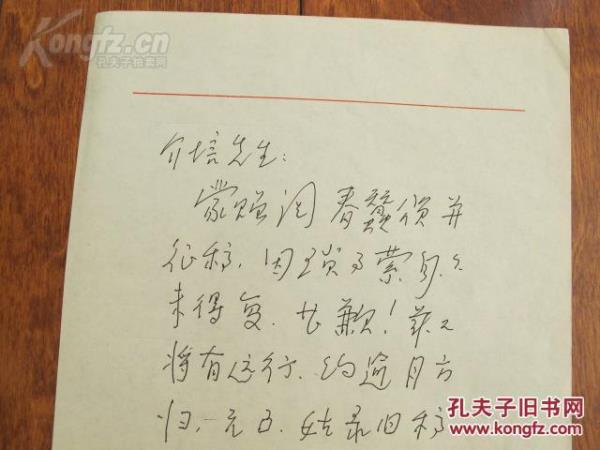 Kongfz.cn
孔夫子拍卖网
介培先生：
蒙赠词春蚕颂并
征稿，因琐事萦身，久
未得复，甚歉！兹又
将有远行，约逾月方
归，姑录旧稿
孔夫子旧书网
www.kongfz.com